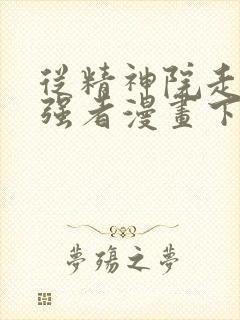 從精神院走
强者漫畫下
夢殤之夢